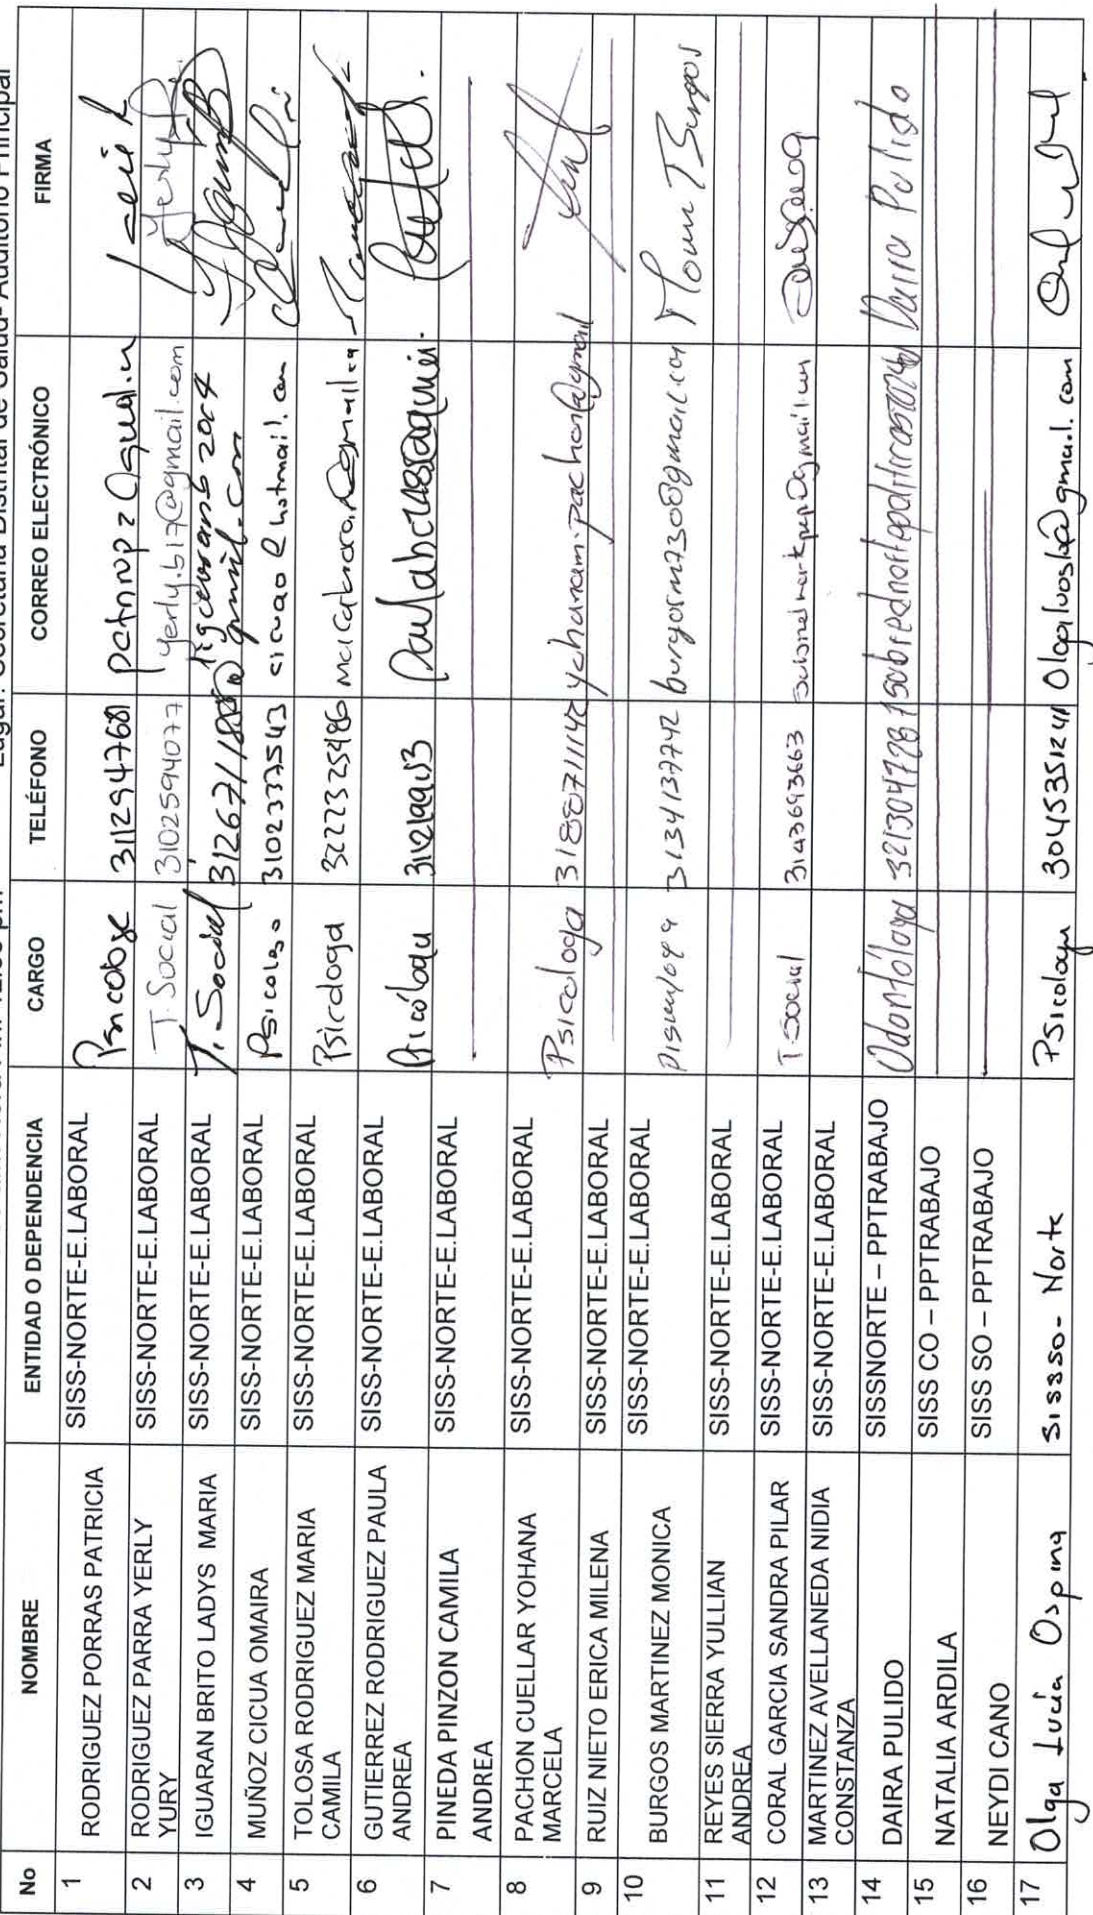 Lugar: Secretaría Distrital de Salud- Auditorio Principal
No NOMBRE ENTIDAD O DEPENDENCIA CARGO TELÉFONO CORREO ELECTRÓNICO FIRMA
1 RODRIGUEZ PORRAS PATRICIA SISS-NORTE-E.LABORAL 3112947681
2 RODRIGUEZ PARRA YERLY YURY SISS-NORTE-E.LABORAL T. Social 3102594077 yerly.b17@gmail.com
3 IGUARAN BRITO LADYS MARIA SISS-NORTE-E.LABORAL T. Social
4 MUÑOZ CICUA OMAIRA SISS-NORTE-E.LABORAL Psicologo 3102337543
5 TOLOSA RODRIGUEZ MARIA CAMILA SISS-NORTE-E.LABORAL Psicologa 3222325486
6 GUTIERREZ RODRIGUEZ PAULA ANDREA SISS-NORTE-E.LABORAL Psicóloga
7 PINEDA PINZON CAMILA ANDREA SISS-NORTE-E.LABORAL
8 PACHON CUELLAR YOHANA MARCELA SISS-NORTE-E.LABORAL Psicologa 3188711142 yohanam.pachon@gmail
9 RUIZ NIETO ERICA MILENA SISS-NORTE-E.LABORAL
10 BURGOS MARTINEZ MONICA SISS-NORTE-E.LABORAL 3134137742 burgosm730@gmail.com
11 REYES SIERRA YULLIAN ANDREA SISS-NORTE-E.LABORAL
12 CORAL GARCIA SANDRA PILAR SISS-NORTE-E.LABORAL T-Social 3143693663
13 MARTINEZ AVELLANEDA NIDIA CONSTANZA SISS-NORTE-E.LABORAL
14 DAIRA PULIDO SISSNORTE – PPTRABAJO Odontóloga 3213047787 Daira Pulido
15 NATALIA ARDILA SISS CO – PPTRABAJO
16 NEYDI CANO SISS SO – PPTRABAJO
17 Olga Lucía Ospina Sissso- Norte Psicologa 3045351241